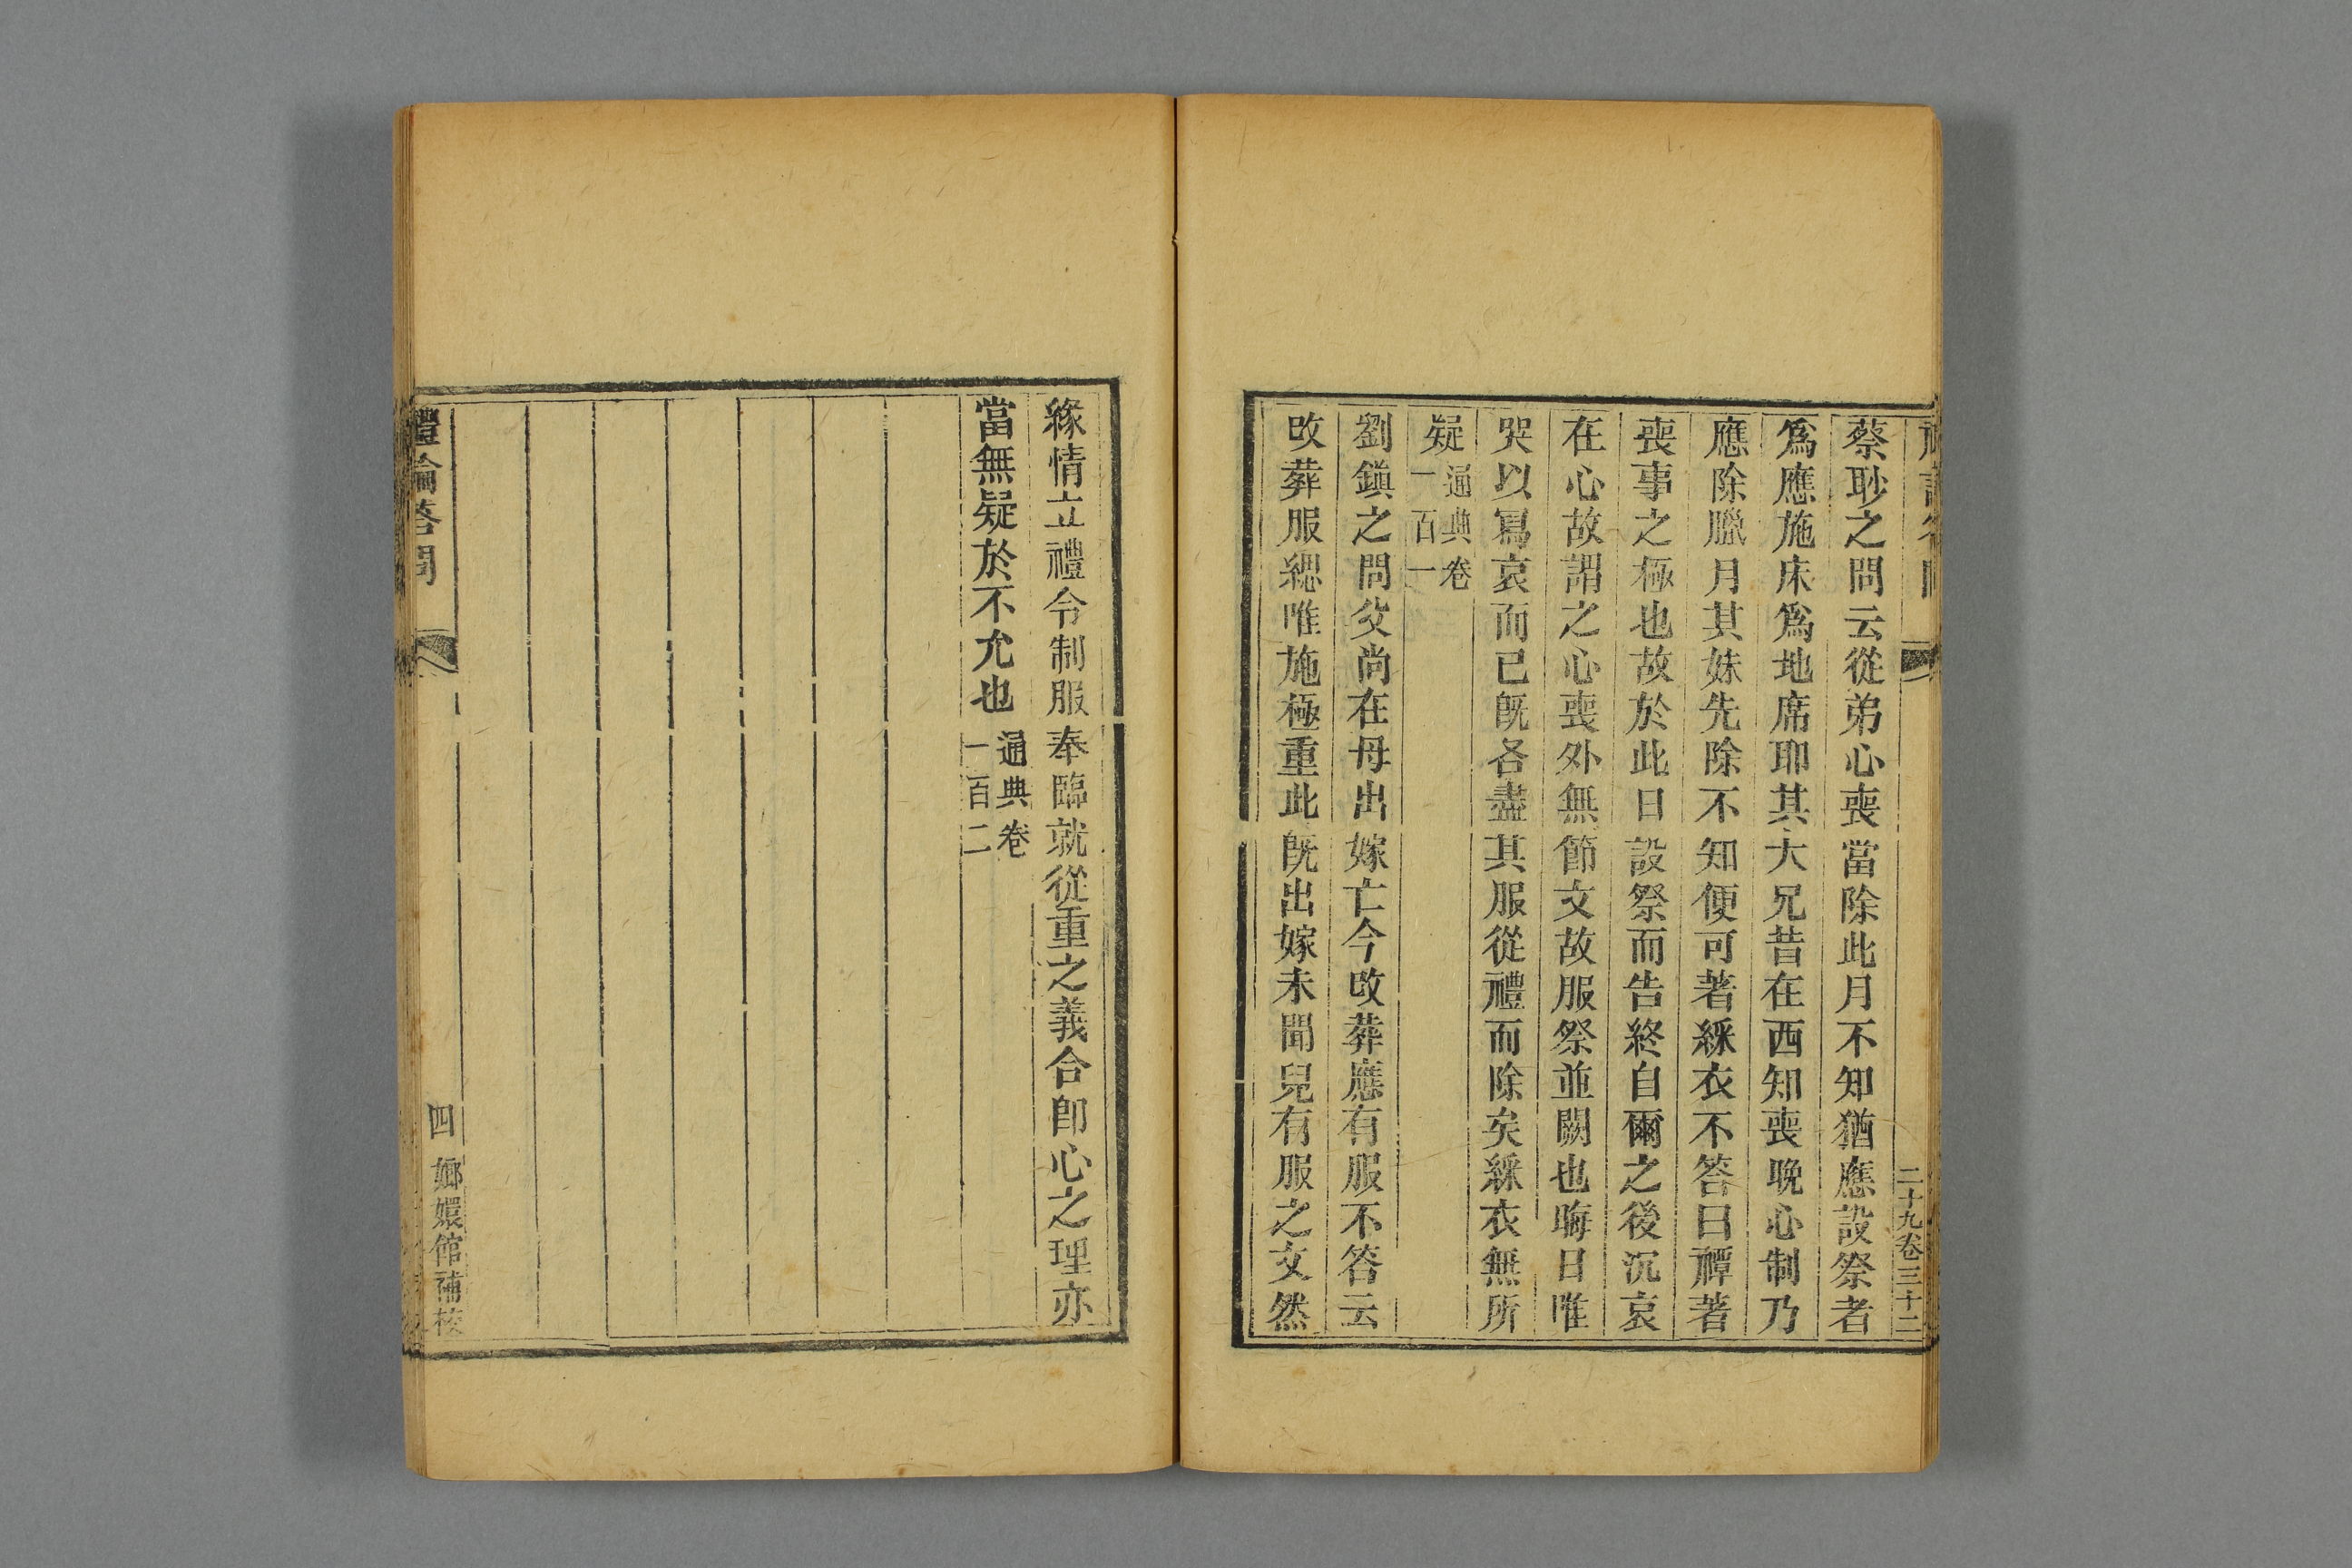 二十九卷三十二
蔡耿之問云從弟心喪當除此月不知猶應設祭者
爲應施床爲地席耶其大兄昔在西知喪晚心制乃
應除臘月其妹先除不知便可著綵衣不答曰禫著
喪事之極也故於此日設祭而告終自爾之後沉哀
在心故謂之心喪外無節文故服祭並闕也晦日唯
哭以寫哀而已旣各盡其服從禮而除矣綵衣無所
疑通典卷一百一
劉鎮之問父尚在母出嫁亡今改葬應有服不答云
改葬服緦唯施極重此旣出嫁未聞兒有服之文然
緣情立禮令制服奉臨就從重之義合卽心之理亦
當無疑於不允也通典卷一百二
禮論答問 四 嫏嬛館補校